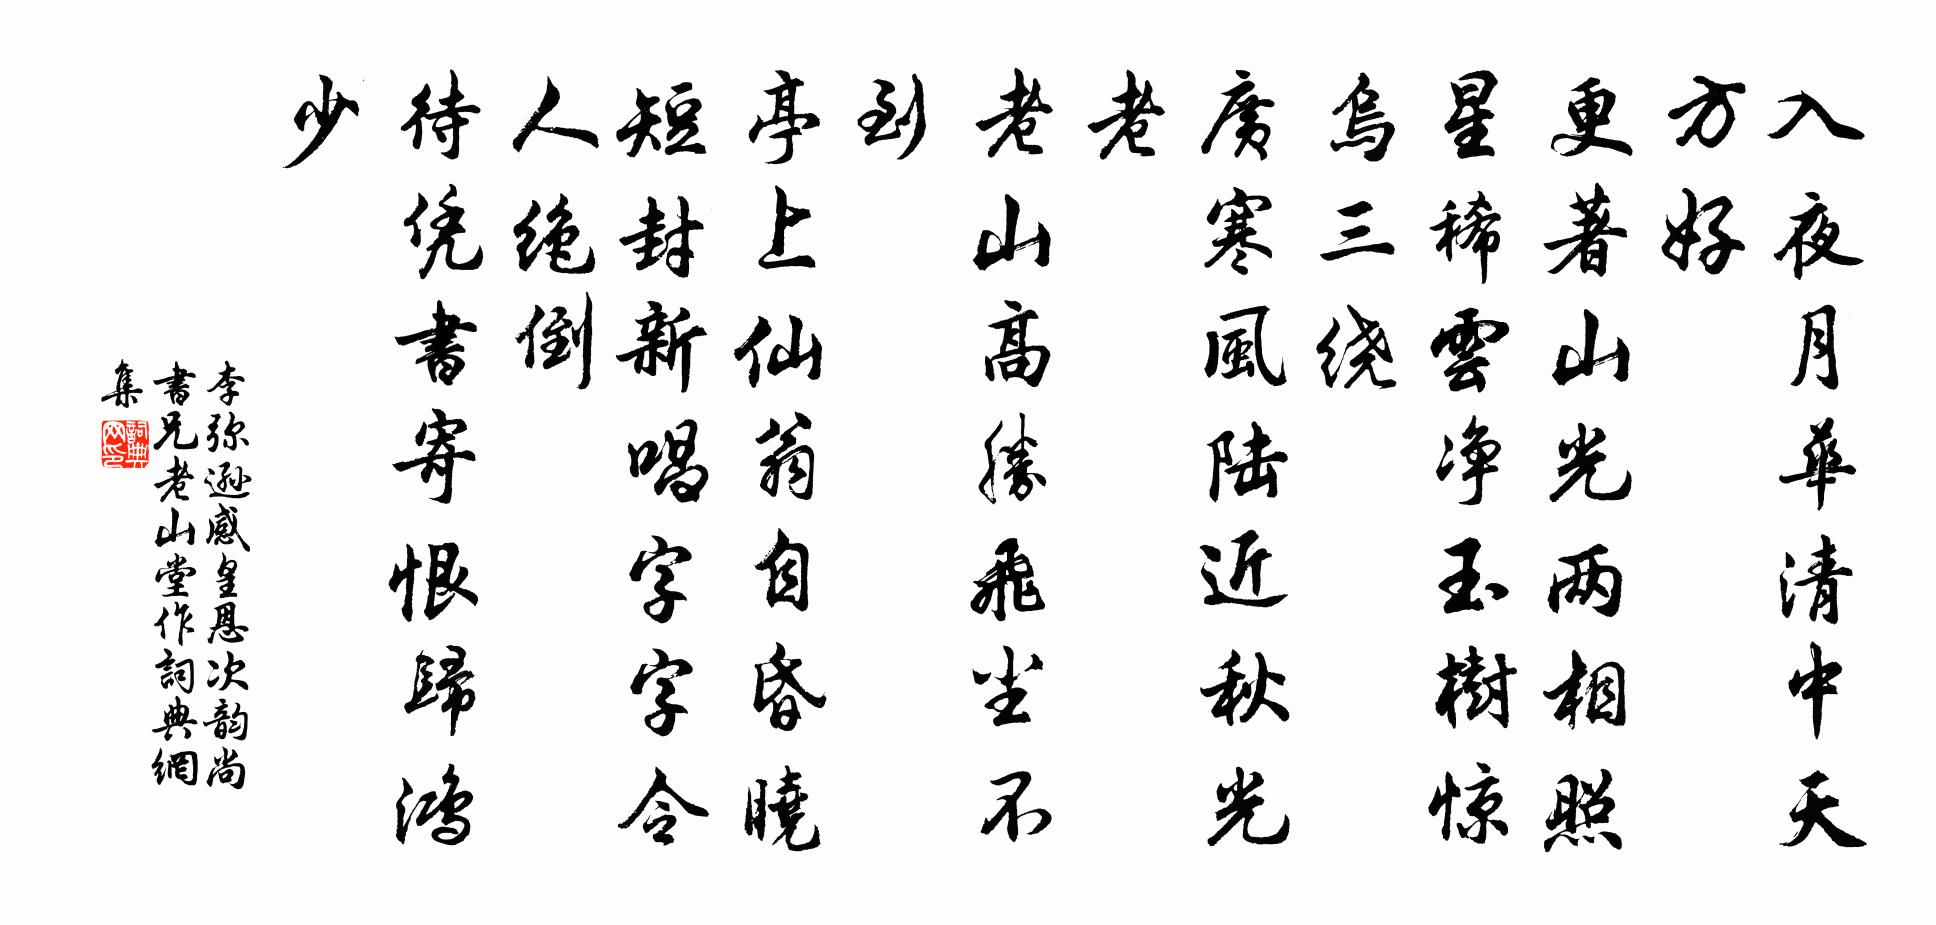 入夜月華清中天
方好
更著山光两相照
星稀雲净玉樹惊
烏三绕
廣寒風陆近秋光
老
老山高勝飛坐不
到
亭上仙翁自昏曉
短封新唱字字令
人绝倒
待凭書寄恨歸鴻
少
李弥遜感皇恩次韵尚
書兄老山堂作詞典網
集
詞典
网印